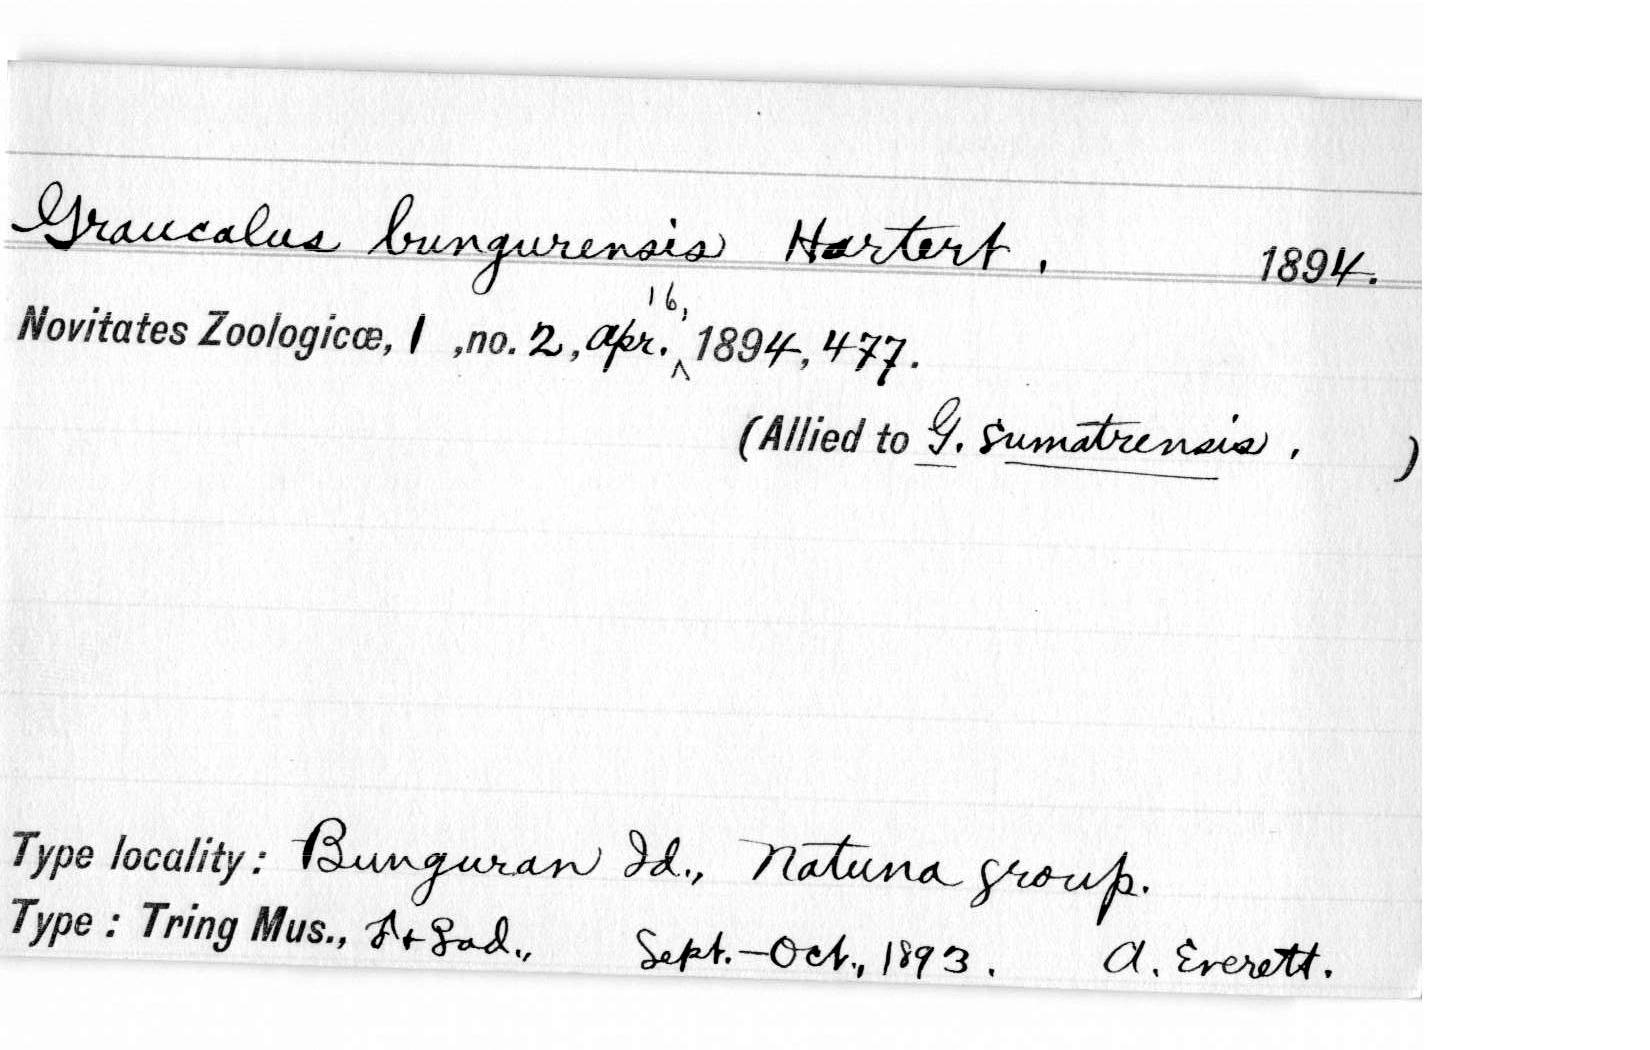 Graucalus bungurensis Hartert. 1894.
Novitates Zoologicæ, 1, no. 2, Apr. 16, 1894, 477.
(Allied to G. sumatrensis. )
Type locality: Bunguran Id., Natuna group.
Type: Tring Mus., ad., Sept.–Oct., 1893. A. Everett.